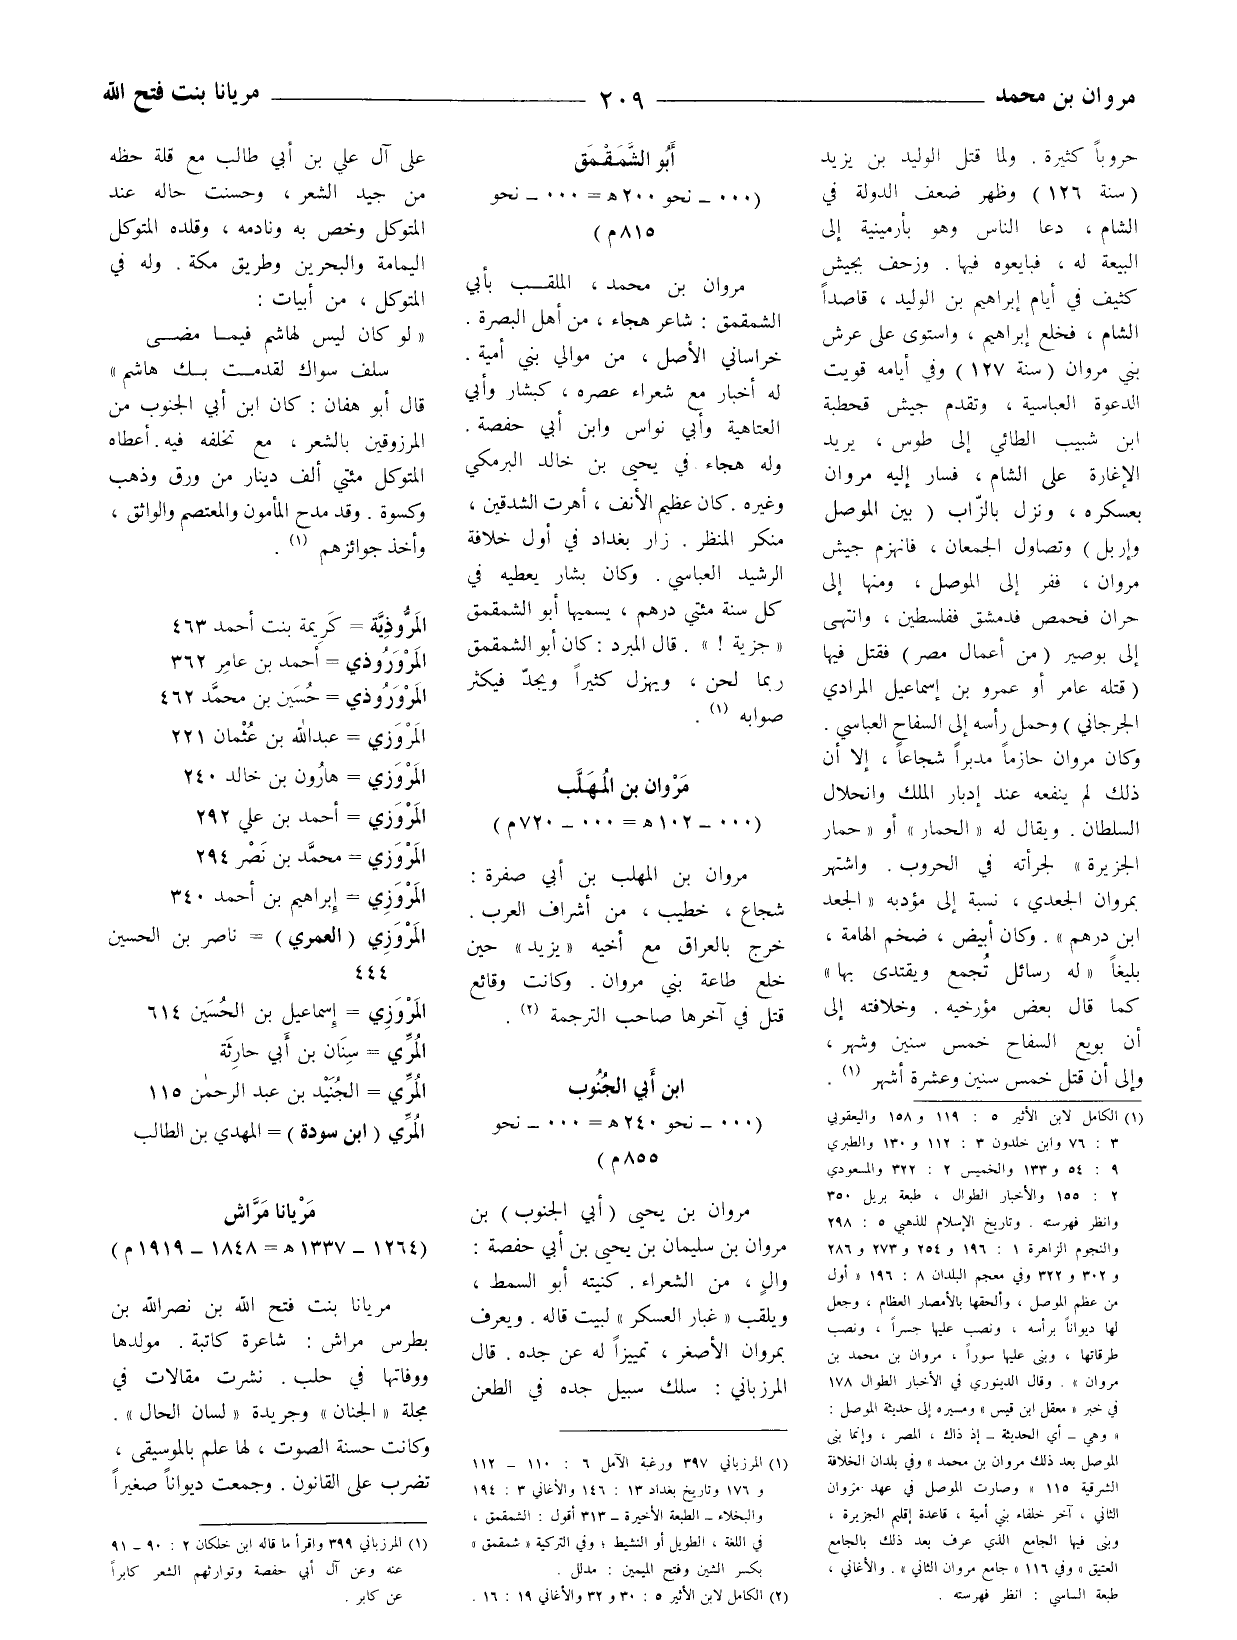 مروان بن محمد
٢٠٩
مريانا بنت فتح الله
حروباً كثيرة . ولما قتل الوليد بن يزيد
( سنة ١٢٦ ) وظهر ضعف الدولة في
الشام ، دعا الناس وهو بأرمينية إلى
البيعة له ، فبايعوه فيها . وزحف بجيش
كثيف في أيام إبراهيم بن الوليد ، قاصداً
الشام ، فخلع إبراهيم ، واستوى على عرش
بني مروان ( سنة ١٢٧ ) وفي أيامه قويت
الدعوة العباسية ، وتقدم جيش قحطبة
ابن شبيب الطائي إلى طوس ، يريد
الإغارة على الشام ، فسار إليه مروان
بعسكره ، ونزل بالزّاب ( بين الموصل
وإربل ) وتصاول الجمعان ، فانهزم جيش
مروان ، ففر إلى الموصل ، ومنها إلى
حران فحمص فدمشق ففلسطين ، وانتهى
إلى بوصير ( من أعمال مصر ) فقتل فيها
( قتله عامر أو عمرو بن إسماعيل المرادي
الجرجاني ) وحمل رأسه إلى السفاح العباسي .
وكان مروان حازماً مدبراً شجاعاً ، إلا أن
ذلك لم ينفعه عند إدبار الملك وانحلال
السلطان . ويقال له « الحمار » أو « حمار
الجزيرة » لجرأته في الحروب . واشتهر
بمروان الجعدي ، نسبة إلى مؤدبه « الجعد
ابن درهم » . وكان أبيض ، ضخم الهامة ،
بليغاً « له رسائل تُجمع ويقتدى بها »
كما قال بعض مؤرخيه . وخلافته إلى
أن بويع السفاح خمس سنين وشهر ،
وإلى أن قتل خمس سنين وعشرة أشهر (١) .
(١) الكامل لابن الأثير ٥ : ١١٩ و ١٥٨ واليعقوبي
٣ : ٧٦ وابن خلدون ٣ : ١١٢ و ١٣٠ والطبري
٩ : ٥٤ و ١٣٣ والخميس ٢ : ٣٢٢ والمسعودي
٢ : ١٥٥ والأخبار الطوال ، طبعة بريل ٣٥٠
وانظر فهرسته . وتاريخ الإسلام للذهبي ٥ : ٢٩٨
والنجوم الزاهرة ١ : ١٩٦ و ٢٥٤ و ٢٧٣ و ٢٨٦
و ٣٠٢ و ٣٢٢ وفي معجم البلدان ٨ : ١٩٦ « أول
من عظم الموصل ، وألحقها بالأمصار العظام ، وجعل
لها ديواناً برأسه ، ونصب عليها جسراً ، ونصب
طرقاتها ، وبنى عليها سوراً ، مروان بن محمد بن
مروان » . وقال الدينوري في الأخبار الطوال ١٧٨
في خبر « معقل ابن قيس » ومسيره إلى حديثة الموصل :
« وهي – أي الحديثة – إذ ذاك ، المصر ، وإنما بنى
الموصل بعد ذلك مروان بن محمد » وفي بلدان الخلافة
الشرقية ١١٥ « وصارت الموصل في عهد مروان
الثاني ، آخر خلفاء بني أمية ، قاعدة إقليم الجزيرة ،
وبنى فيها الجامع الذي عرف بعد ذلك بالجامع
العتيق » وفي ١١٦ « جامع مروان الثاني » . والأغاني ،
طبعة الساسي : انظر فهرسته .
أَبُو الشَّمَقْمَق
(٠٠٠ – نحو ٢٠٠ هـ = ٠٠٠ – نحو
٨١٥ م )
مروان بن محمد ، الملقب بأبي
الشمقمق : شاعر هجاء ، من أهل البصرة .
خراساني الأصل ، من موالي بني أمية .
له أخبار مع شعراء عصره ، كبشار وأبي
العتاهية وأبي نواس وابن أبي حفصة .
وله هجاء في يحيى بن خالد البرمكي
وغيره . كان عظيم الأنف ، أهرت الشدقين ،
منكر المنظر . زار بغداد في أول خلافة
الرشيد العباسي . وكان بشار يعطيه في
كل سنة مئتي درهم ، يسميها أبو الشمقمق
« جزية ! » . قال المبرد : كان أبو الشمقمق
ربما لحن ، ويهزل كثيراً ويجدّ فيكثر
صوابه (١) .
مَرْوان بن المُهَلَّب
(٠٠٠ – ١٠٢ هـ = ٠٠٠ – ٧٢٠ م )
مروان بن المهلب بن أبي صفرة :
شجاع ، خطيب ، من أشراف العرب .
خرج بالعراق مع أخيه « يزيد » حين
خلع طاعة بني مروان . وكانت وقائع
قتل في آخرها صاحب الترجمة (٢) .
ابن أَبي الجُنُوب
(٠٠٠ – نحو ٢٤٠ هـ = ٠٠٠ – نحو
٨٥٥ م )
مروان بن يحيى ( أبي الجنوب ) بن
مروان بن سليمان بن يحيى بن أبي حفصة :
والٍ ، من الشعراء . كنيته أبو السمط ،
ويلقب « غبار العسكر » لبيت قاله . ويعرف
بمروان الأصغر ، تمييزاً له عن جده . قال
المرزباني : سلك سبيل جده في الطعن
(١) المرزباني ٣٩٧ ورغبة الآمل ٦ : ١١٠ – ١١٢
و ١٧٦ وتاريخ بغداد ١٣ : ١٤٦ والأغاني ٣ : ١٩٤
والبخلاء – الطبعة الأخيرة – ٣١٣ أقول : الشمقمق ،
في اللغة ، الطويل أو النشيط ؛ وفي التركية « شمقمق »
بكسر الشين وفتح الميمين : مدلل .
(٢) الكامل لابن الأثير ٥ : ٣٠ و ٣٢ والأغاني ١٩ : ١٦ .
على آل علي بن أبي طالب مع قلة حظه
من جيد الشعر ، وحسنت حاله عند
المتوكل وخص به ونادمه ، وقلده المتوكل
اليمامة والبحرين وطريق مكة . وله في
المتوكل ، من أبيات :
« لو كان ليس لهاشم فيما مضى
سلف سواك لقدمت بك هاشم »
قال أبو هفان : كان ابن أبي الجنوب من
المرزوقين بالشعر ، مع تخلفه فيه . أعطاه
المتوكل مئتي ألف دينار من ورق وذهب
وكسوة . وقد مدح المأمون والمعتصم والواثق ،
وأخذ جوائزهم (١) .
المَرُّوذِيَّة = كَرِيمة بنت أحمد ٤٦٣
المَرْوَرُوذي = أحمد بن عامِر ٣٦٢
المَرْوَرُوذي = حُسَين بن محمَّد ٤٦٢
المَرْوَزي = عبدالله بن عُثْمان ٢٢١
المَرْوَزي = هارُون بن خالد ٢٤٠
المَرْوَزي = أحمد بن علي ٢٩٢
المَرْوَزي = محمَّد بن نَصْر ٢٩٤
المَرْوَزِي = إبراهيم بن أحمد ٣٤٠
المَرْوَزي ( العمري ) = ناصر بن الحسين
٤٤٤
المَرْوَزِي = إسماعيل بن الحُسَين ٦١٤
المُرِّي = سِنَان بن أَبي حارِثَة
المُرِّي = الجُنَيْد بن عبد الرحمٰن ١١٥
المُرِّي ( ابن سودة ) = المهدي بن الطالب
مَرْيانا مَرَّاش
(١٢٦٤ – ١٣٣٧ هـ = ١٨٤٨ – ١٩١٩ م )
مريانا بنت فتح الله بن نصرالله بن
بطرس مراش : شاعرة كاتبة . مولدها
ووفاتها في حلب . نشرت مقالات في
مجلة « الجنان » وجريدة « لسان الحال » .
وكانت حسنة الصوت ، لها علم بالموسيقى ،
تضرب على القانون . وجمعت ديواناً صغيراً
(١) المرزباني ٣٩٩ واقرأ ما قاله ابن خلكان ٢ : ٩٠ – ٩١
عنه وعن آل أبي حفصة وتوارثهم الشعر كابراً
عن كابر .